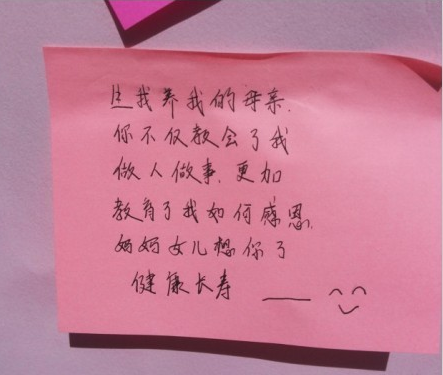 生我养我的母亲,
你不仅教会了我
做人做事,更加
教育了我如何感恩,
妈妈女儿想你了
健康长寿 ——